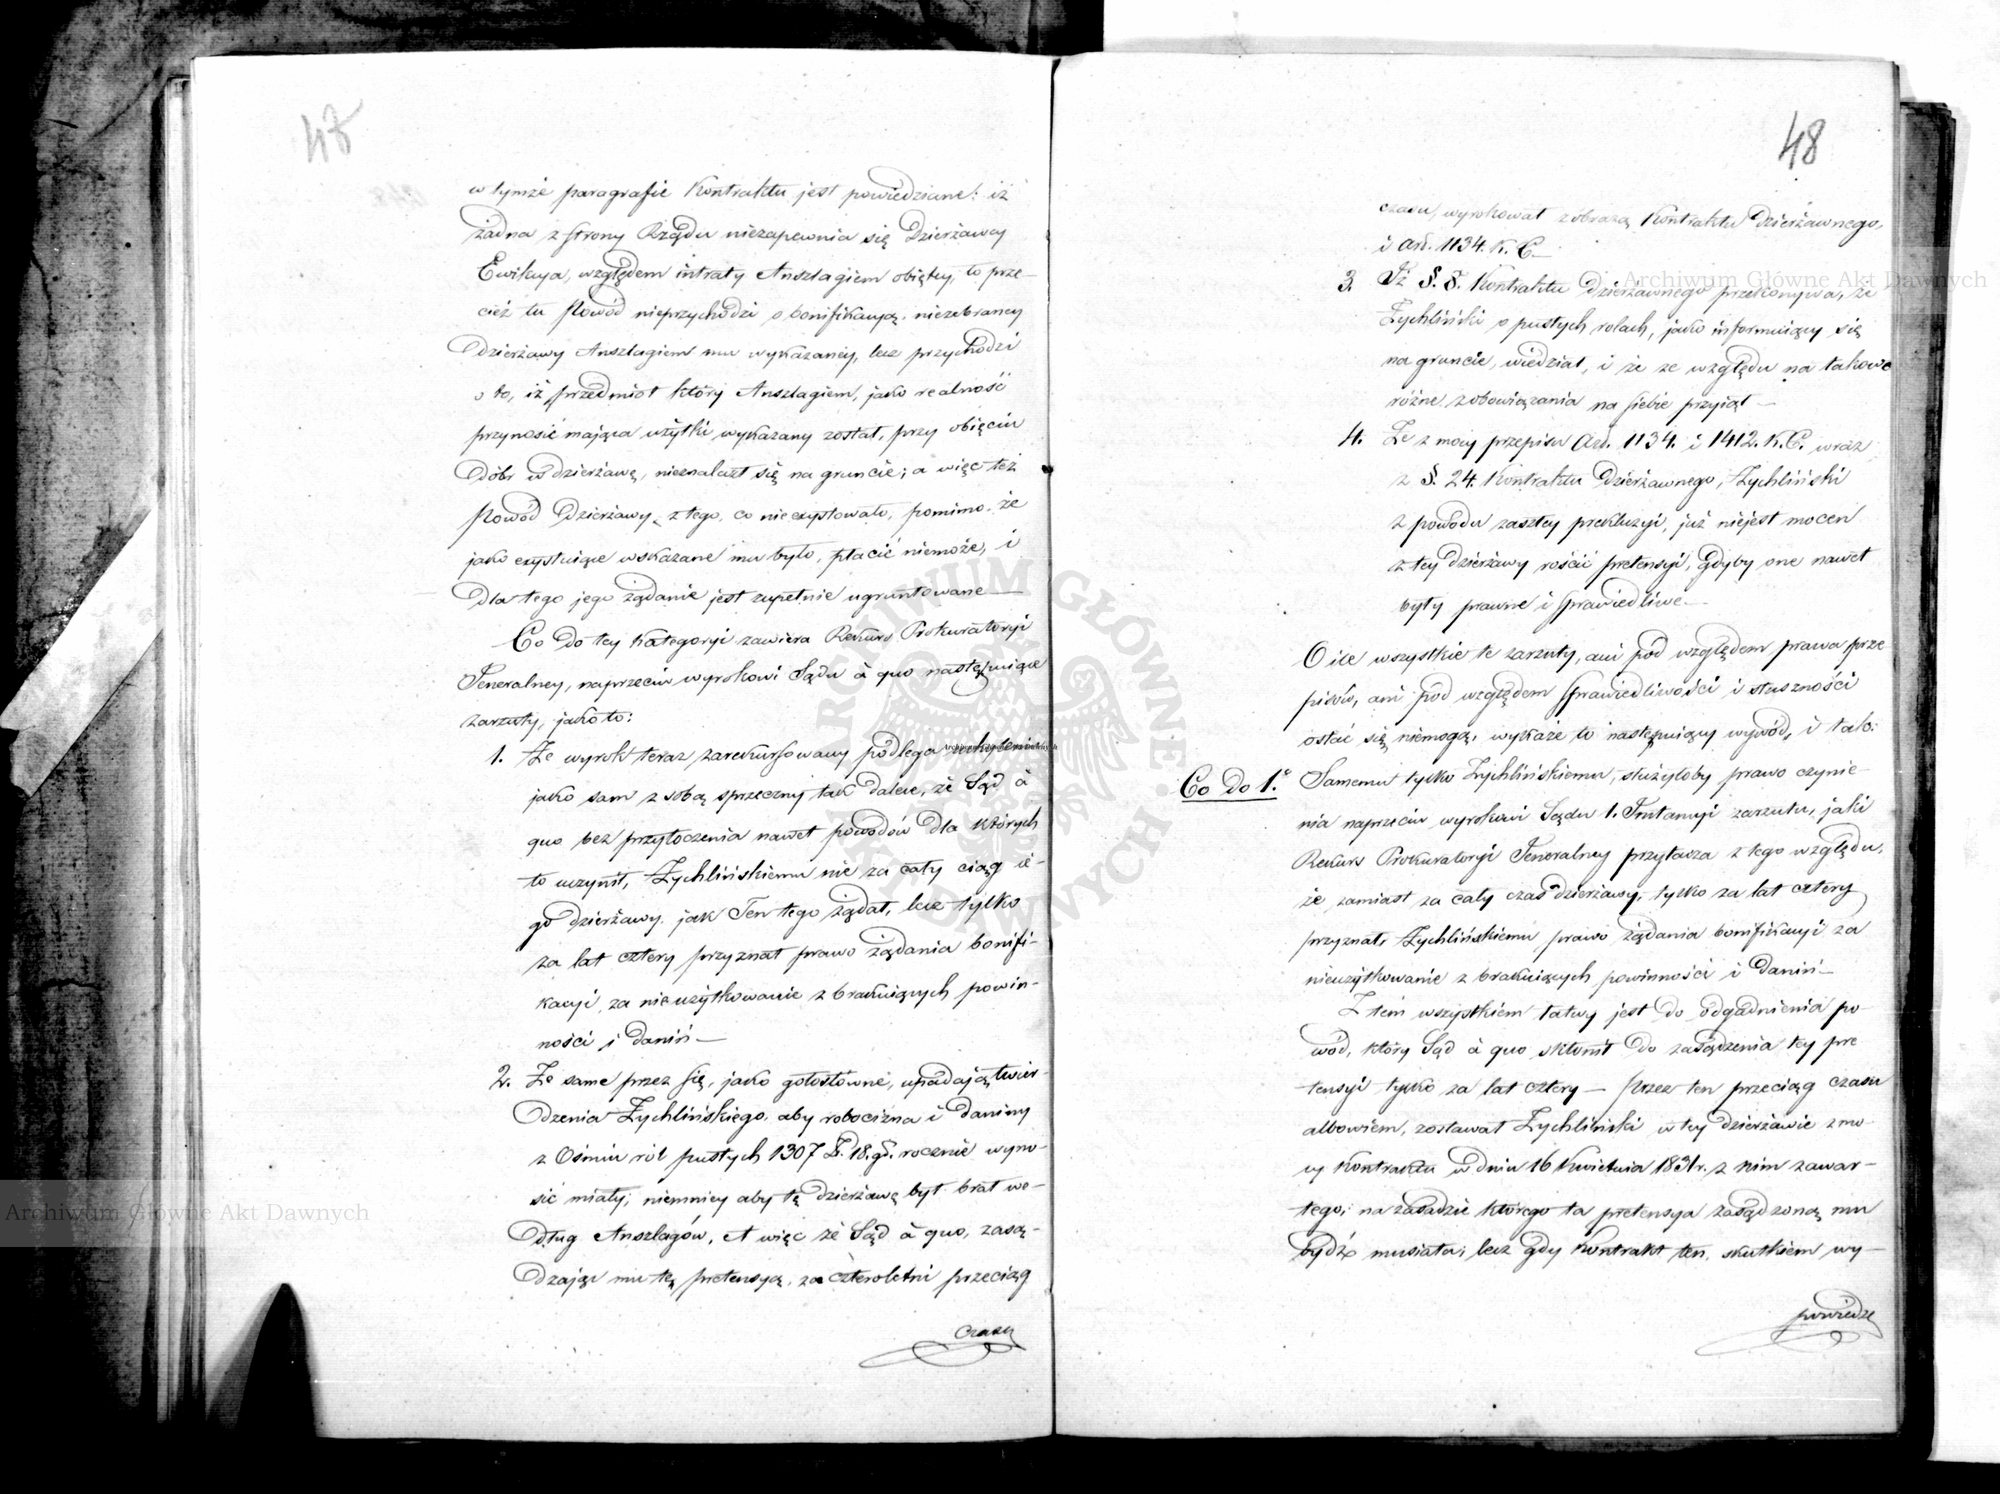 48
w tymże paragrafie Kontraktu jest powiedziane: iż
żadna z strony Rządu niezapewnia się Dzierżawcy
Ewikcya, względem intraty Anszlagiem obiętey, to prze-
cież tu Powód nieprzychodzi o bonifikacyą niezebraney
Dzierżawy Anszlagiem mu wykazaney, lecz przychodzi
o to, iż przedmiot który Anszlagiem, jako realność
przynosić maiąca użytki wykazany został, przy obięciu
Dóbr w dzierżawę, nieznalazł się na gruncie; a więc też
Powód Dzierżawy z tego, co nieexystowało, pomimo że
jako exystuiące wskazane mu było, płacić niemoże, i
dla tego jego żądanie jest zupełnie ugruntowane —
Co do tey kategoryi zawiera Rekurs Prokuratoryi
Generalney, naprzeciw wyrokowi Sądu à quo następuiące
zarzuty, jako to:
1. Że wyrok teraz zarekursowany podlega uchyleniu
jako sam z sobą sprzeczny tak dalece, że Sąd à
quo bez przytoczenia nawet powodów dla których
to uczynił, Żychlińskiemu nie za cały ciąg ie-
go dzierżawy jak Ten tego żądał, lecz tylko
za lat cztery przyznał prawo żądania bonifi-
kacyi, za nieużytkowanie z brakuiących powin-
ności i danin —
2. Że same przez się, jako gołosłówne, upadaią twier-
dzenia Żychlińskiego, aby robocizna i daniny
z Ośmiu ról pustych 1307 Zł. 18. gr. rocznie wyno-
sić miały; niemniey aby tę dzierżawę był brał we-
dług Anszlagów, A więc że Sąd à quo, zasą-
dzaiąc mu tę pretensyą, za czteroletni przeciąg
czasu
48
czasu, wyrokował z obrazą Kontraktu Dzierżawnego,
i Art. 1134. K. C. —
3. Iż §. 8. Kontraktu Dzierżawnego przekonywa, że
Żychliński o pustych rolach, jako informuiący się
na gruncie, wiedział, i że ze względu na takowe
różne zobowiązania na siebie przyiął —
4. Że z mocy przepisu Art. 1134. i 1412. K. C. wraz
z §. 24. Kontraktu Dzierżawnego, Żychliński
z powodu zaszłey prekluzyi, już niejest mocen
z tey dzierżawy rościć pretensyi, gdyby one nawet
były prawne i sprawiedliwe —
O ile wszystkie te zarzuty, ani pod względem prawa prze
pisów, ani pod względem sprawiedliwości i słuszności
ostać się niemogą, wykaże to następuiący wywód, i tak:
Co do 1.º Samemu tylko Żychlińskiemu, służyłoby prawo czynie-
nia naprzeciw wyrokowi Sądu 1. Instancyi zarzutu, jaki
Rekurs Prokuratoryi Generalney przytacza z tego względu,
że zamiast za cały czas dzierżawy, tylko za lat cztery
przyznał Żychlińskiemu prawo żądania bonifikacyi za
nieużytkowanie z brakuiących powinności i danin —
Z tém wszystkiem łatwy jest do odgadnienia po-
wód, który Sąd à quo skłonił do zasądzenia tey pre
tensyi tylko za lat cztery — Przez ten przeciąg czasu
albowiem, zostawał Żychliński w tey dzierżawie z mo-
cy Kontraktu w dniu 16 Kwietnia 1831 r. z nim zawar-
tego, na zasadzie którego ta pretensya zasądzoną mu
bydź musiała; lecz gdy Kontrakt ten, skutkiem wy-
powiedze
Archiwum Główne Akt Dawnych
Archiwum Główne Akt Dawnych
Archiwum Główne Akt Dawnych
ARCHIWUM GŁÓWNE AKT DAWNYCH